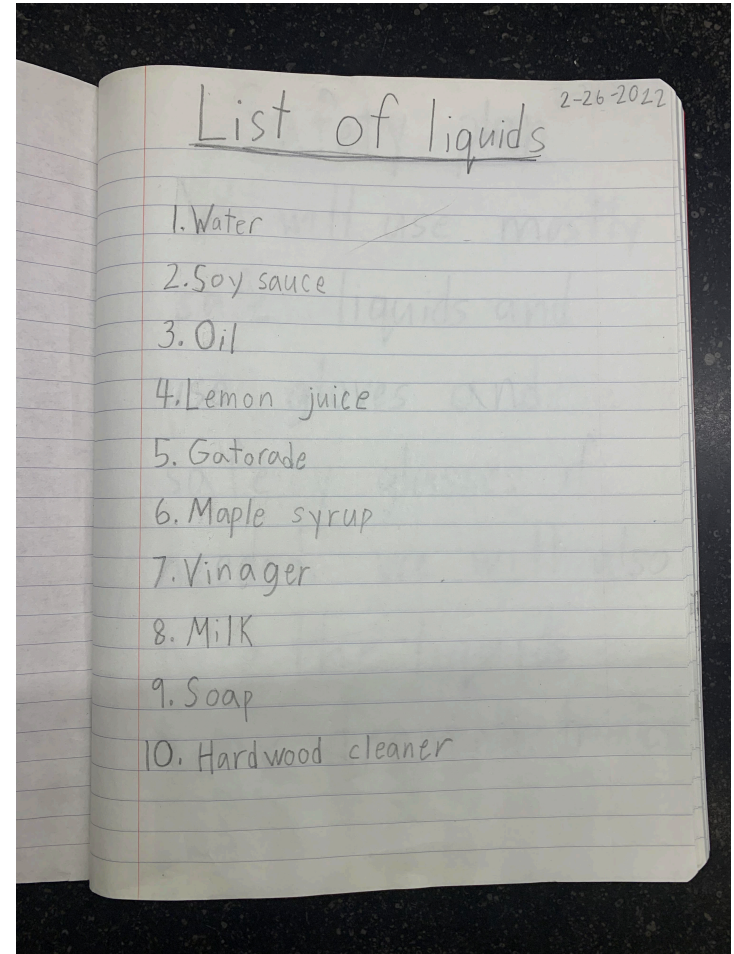 2-26-2022
List of liquids
1. Water
2. Soy sauce
3. Oil
4. Lemon juice
5. Gatorade
6. Maple syrup
7. Vinager
8. Milk
9. Soap
10. Hardwood cleaner